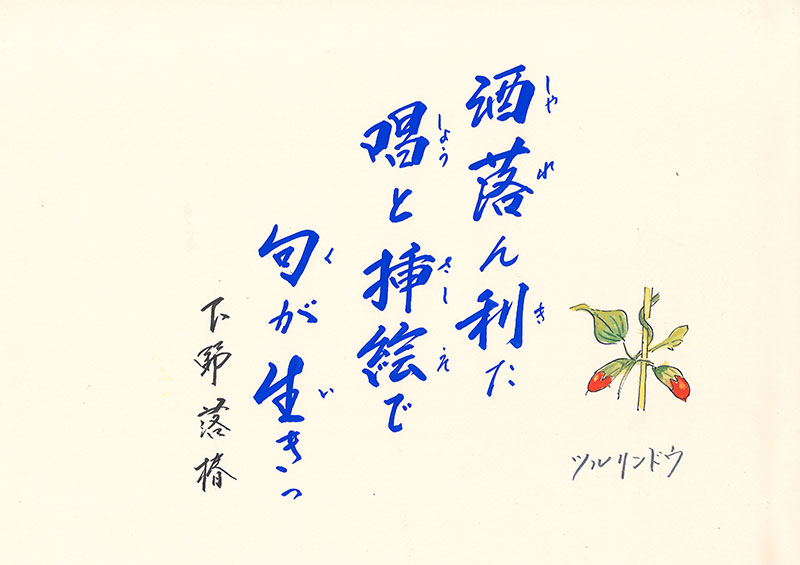 酒落ん利た
しゃれ き
唱と挿絵で
しょう さし え
句が生きっ
く い
下野落椿
ツルリンドウ